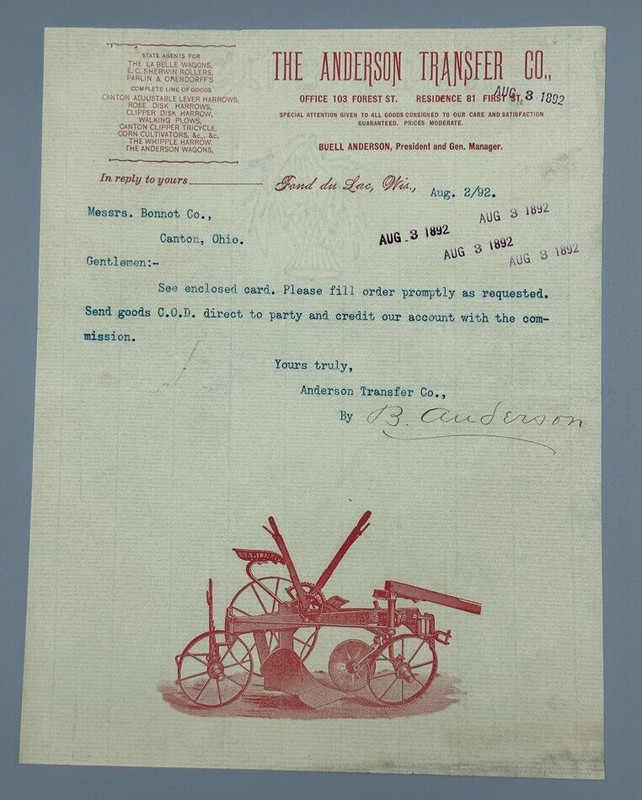 STATE AGENTS FOR
THE LA BELLE WAGONS,
E. C. SHERWIN ROLLERS,
PARLIN & ORENDORFF'S
COMPLETE LINE OF GOODS
CANTON ADJUSTABLE LEVER HARROWS,
ROSE DISK HARROWS,
CLIPPER DISK HARROW,
WALKING PLOWS,
CANTON CLIPPER TRICYCLE,
CORN CULTIVATORS, &c., &c.
THE WHIPPLE HARROW.
THE ANDERSON WAGONS,
THE ANDERSON TRANSFER CO.,
OFFICE 103 FOREST ST. RESIDENCE 81 FIRST ST,
AUG 3 1892
SPECIAL ATTENTION GIVEN TO ALL GOODS CONSIGNED TO OUR CARE AND SATISFACTION
GUARANTEED. PRICES MODERATE.
BUELL ANDERSON, President and Gen. Manager.
In reply to yours
Fond du Lac, Wis., Aug. 2/92.
Messrs. Bonnot Co.,
AUG 3 1892
AUG 3 1892
Canton, Ohio.
AUG 3 1892
AUG 3 1892
Gentlemen:-
See enclosed card. Please fill order promptly as requested.
Send goods C.O.D. direct to party and credit our account with the com-
mission.
Yours truly,
Anderson Transfer Co.,
By B. Anderson